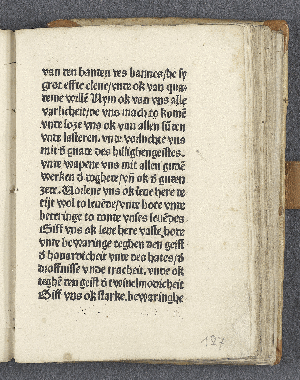 van den banden des bannes/de sy
grot effte clene/vnde ok van qua-
deme willē Nym ok van vns alle
varlicheit/de vns mach to komē
vnde loze vns ok van allen sūden
vnde lasteren. vnde vorlichte vns
mit d̄ gnade des hillighen geistes.
vnde wapene vns mit allen gudē
werken d̄ doghede/vn̄ ok d̄ guden
zede. Vorlene vns ok leue here de
tijt wol to leuēde/vnde bote vnde
beteringe to donde vnses leuēdes.
Giff vns ok leue here vaste hope
vnde bewaringe teghen den geist
d̄ houardicheit vnde des hates/d̄
vnde tracheit. vnde ok
teghē den geist d̄ twiuelmodicheit
Giff vns ok starke. bewaringhe
127